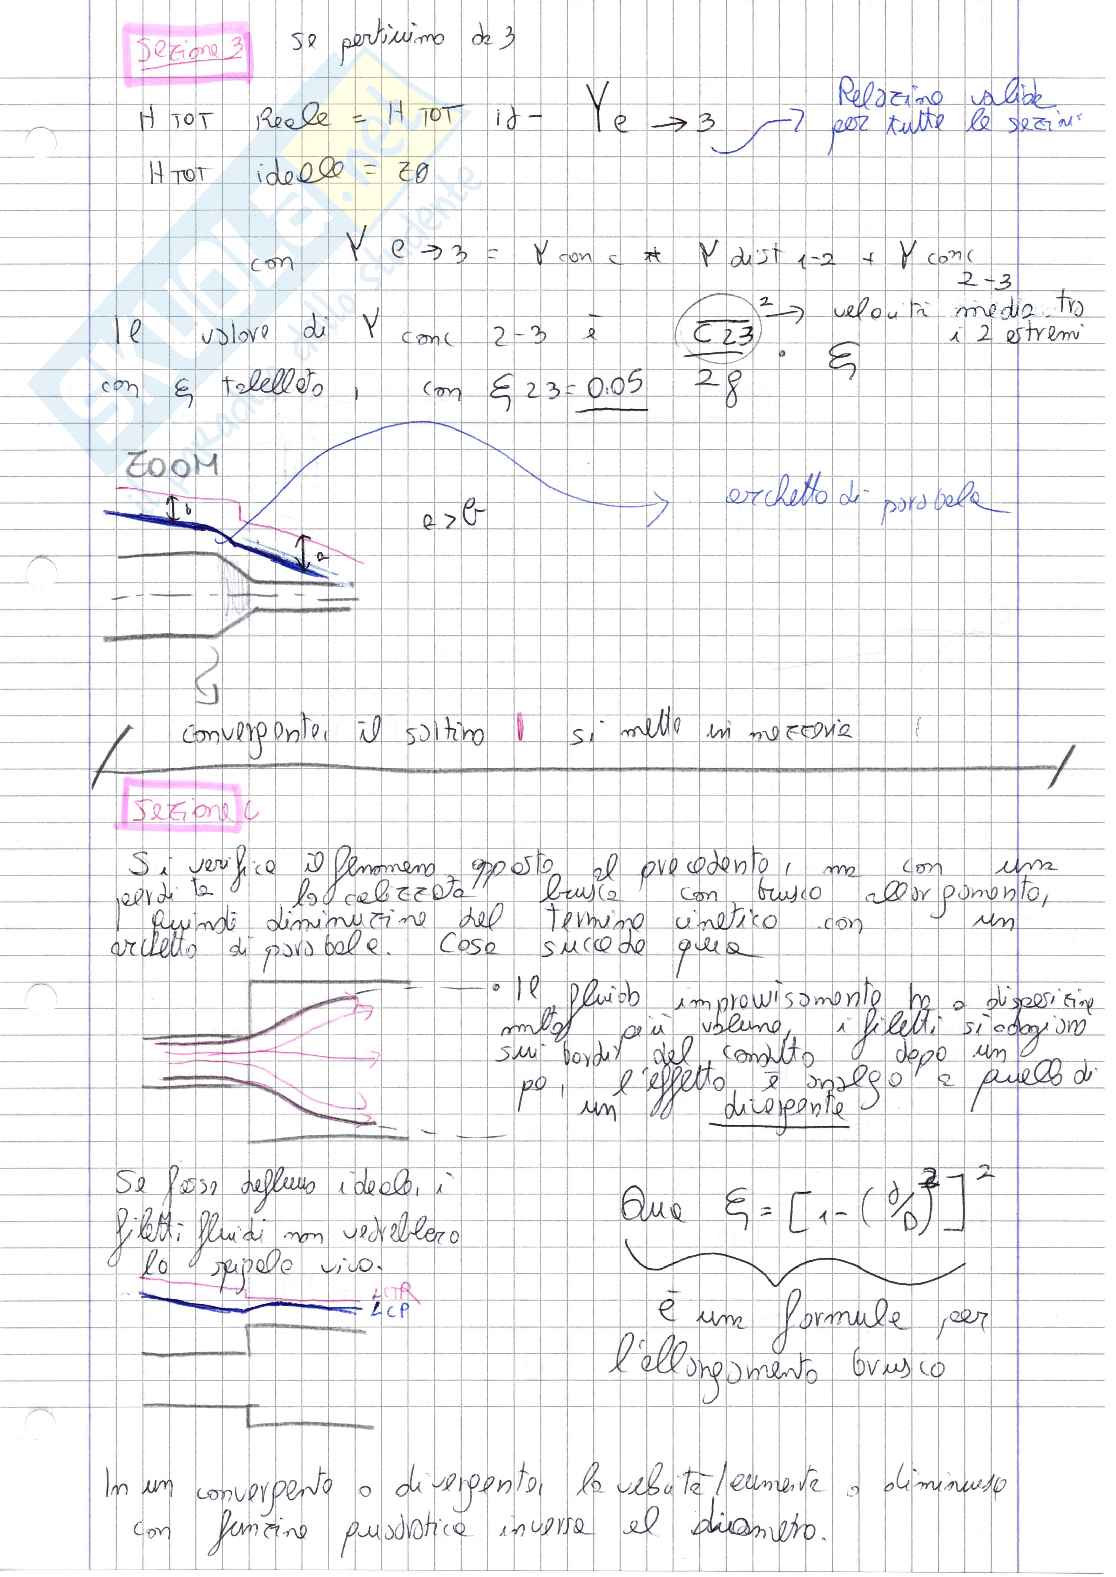 Sezione 3 se partiamo da 3
H TOT Reale = H TOT id - Ye → 3
Relazione valida
per tutte le sezioni
H TOT ideale = z0
con Y e→3 = Y conc + Y dist 1-2 + Y conc 2-3
Il valore di Y conc 2-3 è C23² / 2g · ξ
→ velocità media tra
i 2 estremi
con ξ tabellato, con ξ 23 = 0.05
ZOOM
b
a
a > b
archetto di parabola
convergente, il saltino si mette in mezzeria
Sezione 4
Si verifica il fenomeno opposto al precedente, ma con una
perdita localizzata brusca con brusco allargamento,
quindi diminuzione del termine cinetico con un
archetto di parabola. Cosa succede qua
• Il fluido improvvisamente ha a disposizione
molto più volume, i filetti si adagiano
sui bordi del condotto dopo un
po, l'effetto è analogo a quello di
un divergente
Se fosse deflusso ideale, i
filetti fluidi non vedrebbero
lo spigolo vivo.
Qua ξ = [1 - (d/D)²]²
LCTR
LCP
è una formula per
l'allargamento brusco
In un convergente o divergente, la velocità aumenta o diminuisce
con funzione quadratica inversa al diametro.